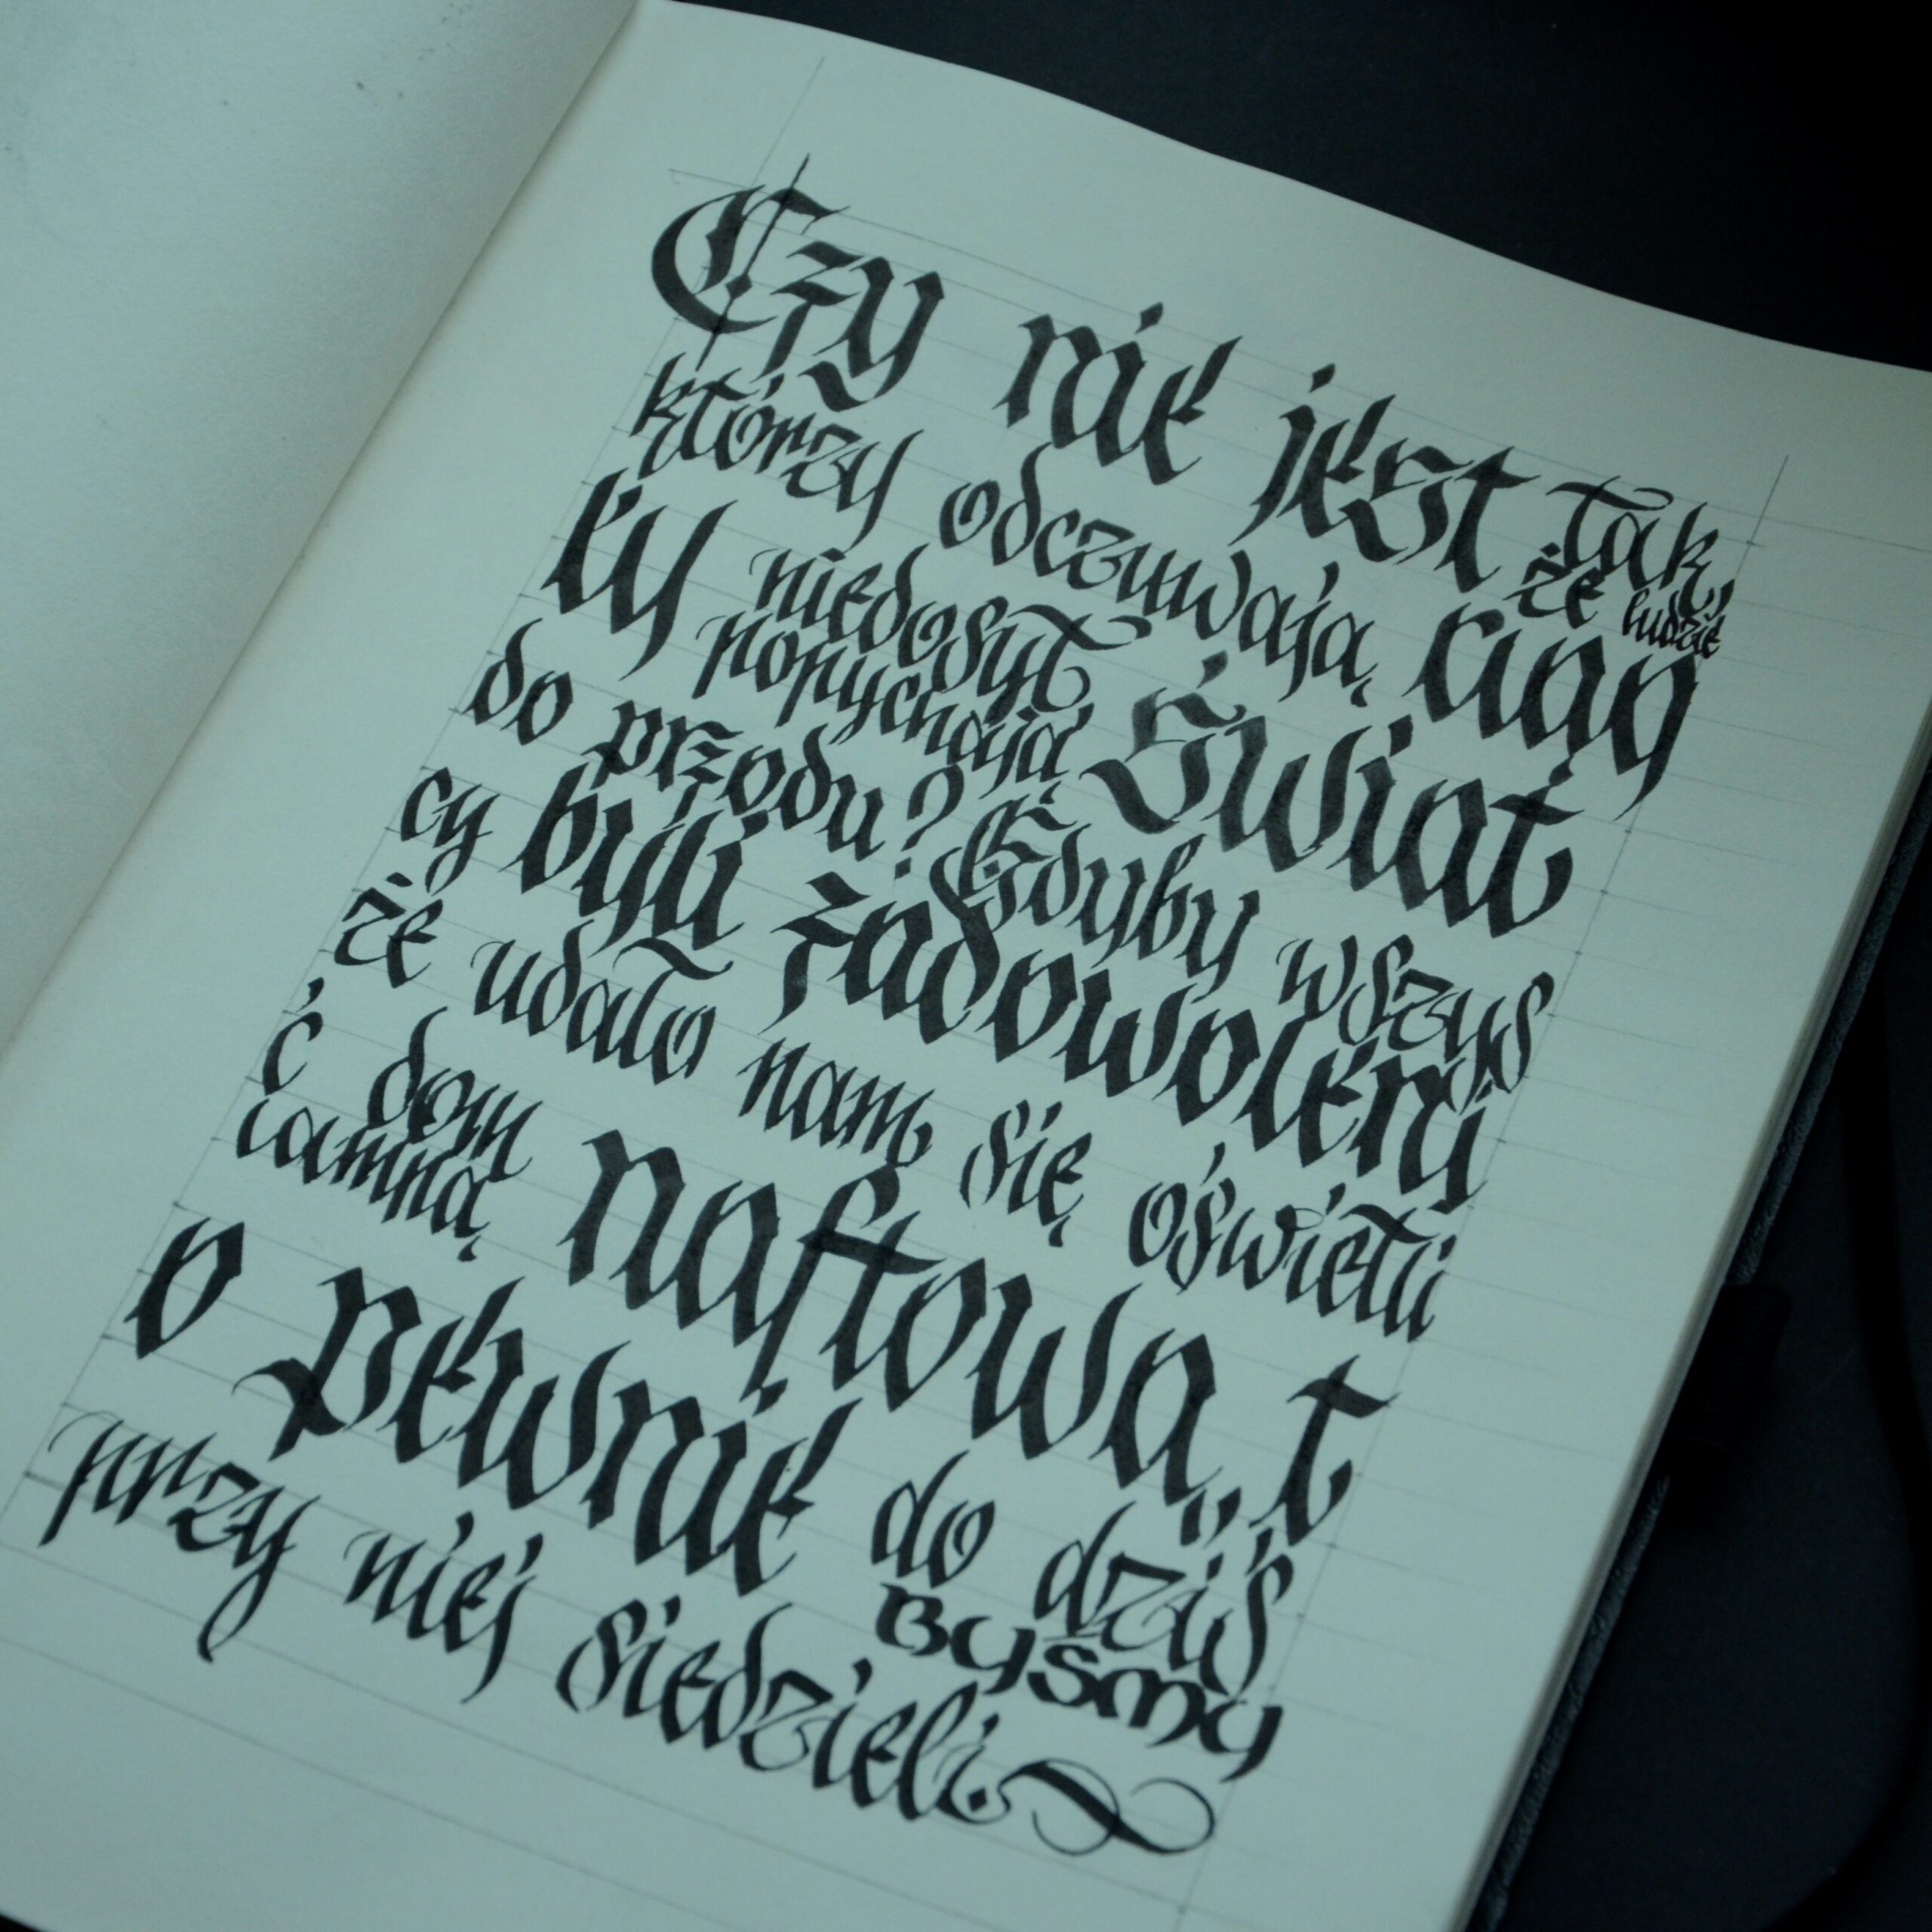 Czy nie jest tak, że ludzie
którzy odczuwają ciąg
ły niedosyt popychają świat
do przodu? Gdyby wszys
cy byli zadowoleni
że udało nam się oświetli
ć dom lampą naftową, t
o pewnie do dziś byśmy
przy niej siedzieli.